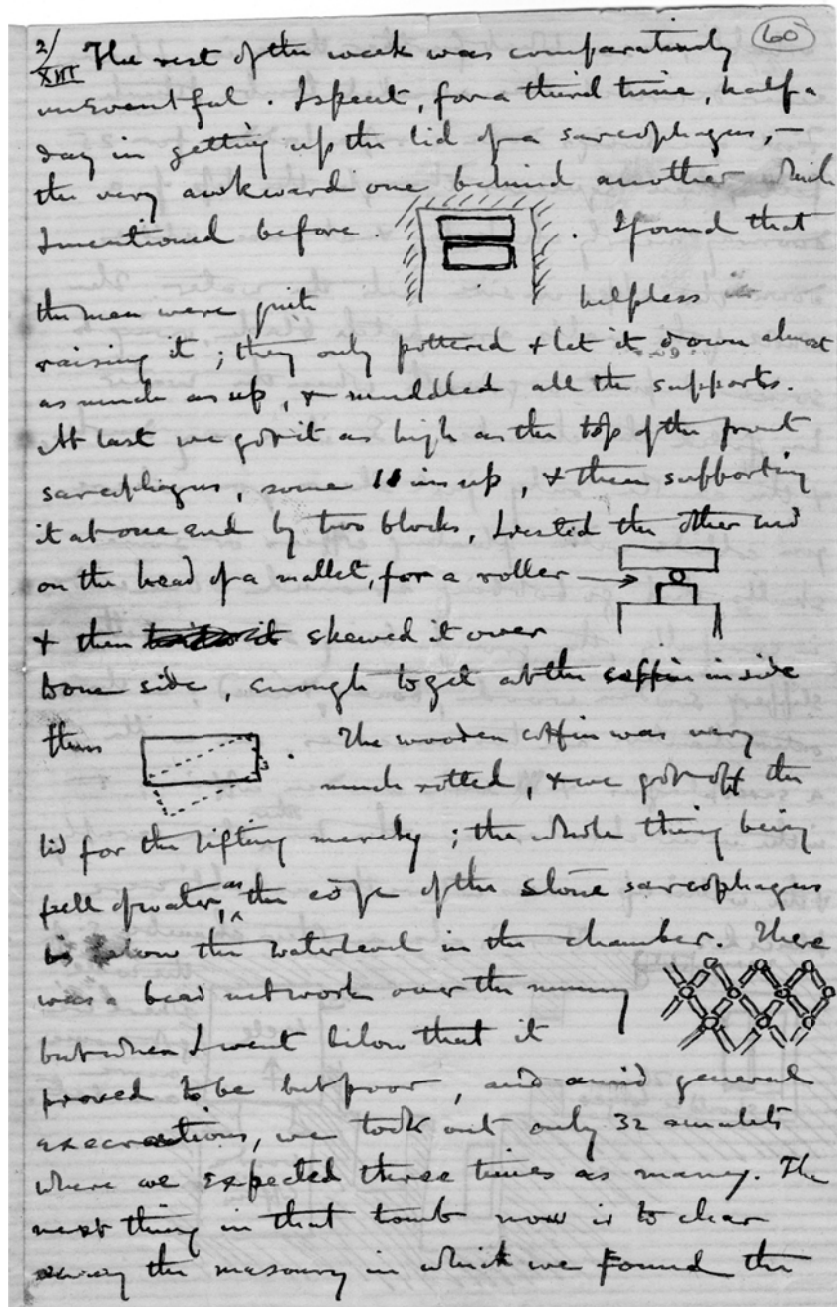 60
2/XIII The rest of the week was comparatively
uneventful. I spent, for a third time, half a
day in getting up the lid of a sarcophagus, –
the very awkward one behind another which
I mentioned before. . I found that
the men were quite helpless in
raising it; they only pottered & let it down almost
as much as up, & muddled all the supports.
At last we got it as high as the top of the front
sarcophagus, some 18 ins up, & then supporting
it at one end by two blocks, I rested the other end
on the head of a mallet, for a roller
& then skewed it over
to one side, enough to get at the coffin inside
thus . The wooden coffin was very
much rotted, & we got off the
lid for the lifting merely; the whole thing being
full of water, as the edge of the stone sarcophagus
is below the waterlevel in the chamber. There
was a bead network over the mummy
but when I went below that it
proved to be but poor, and amid general
execrations, we took out only 32 amulets
where we expected three times as many. The
next thing in that tomb now is to clear
away the masonry in which we found the